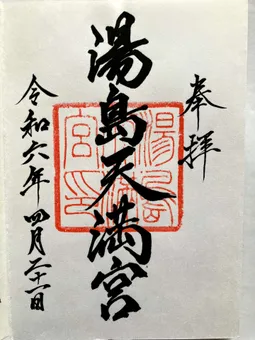 奉拝
湯島天満宮
令和六年四月二十一日